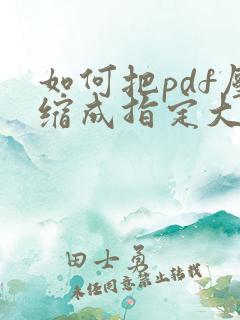 如何把pdf压
缩成指定大
田士勇
未经同意禁止转载